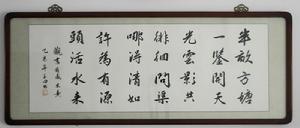 半畝方塘
一鑒開天
光雲影共
徘徊問渠
哪淂清如
許為有源
頭活水来
觀書有感朱熹